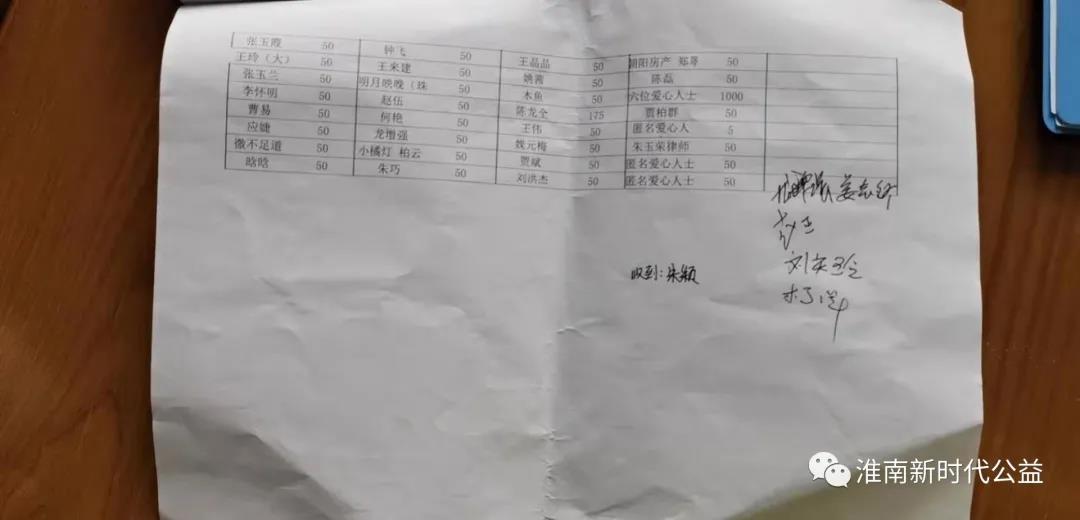 张玉霞 50 钟飞 50 王晶晶 50 朝阳房产 郑琴 50
王玲（大） 50 王来建 50 姚茜 50 陈磊 50
张玉兰 50 明月映晚（珠 50 木鱼 50 六位爱心人士 1000
李怀明 50 赵伍 50 陈龙全 175 贾柏群 50
曹易 50 何艳 50 王伟 50 匿名爱心人 5
应婕 50 龙增强 50 魏元梅 50 朱玉荣律师 50
微不足道 50 小橘灯 柏云 50 贾斌 50 匿名爱心人士 50
晗晗 50 朱巧 50 刘洪杰 50 匿名爱心人士 50
收到：朱颖
淮南新时代公益